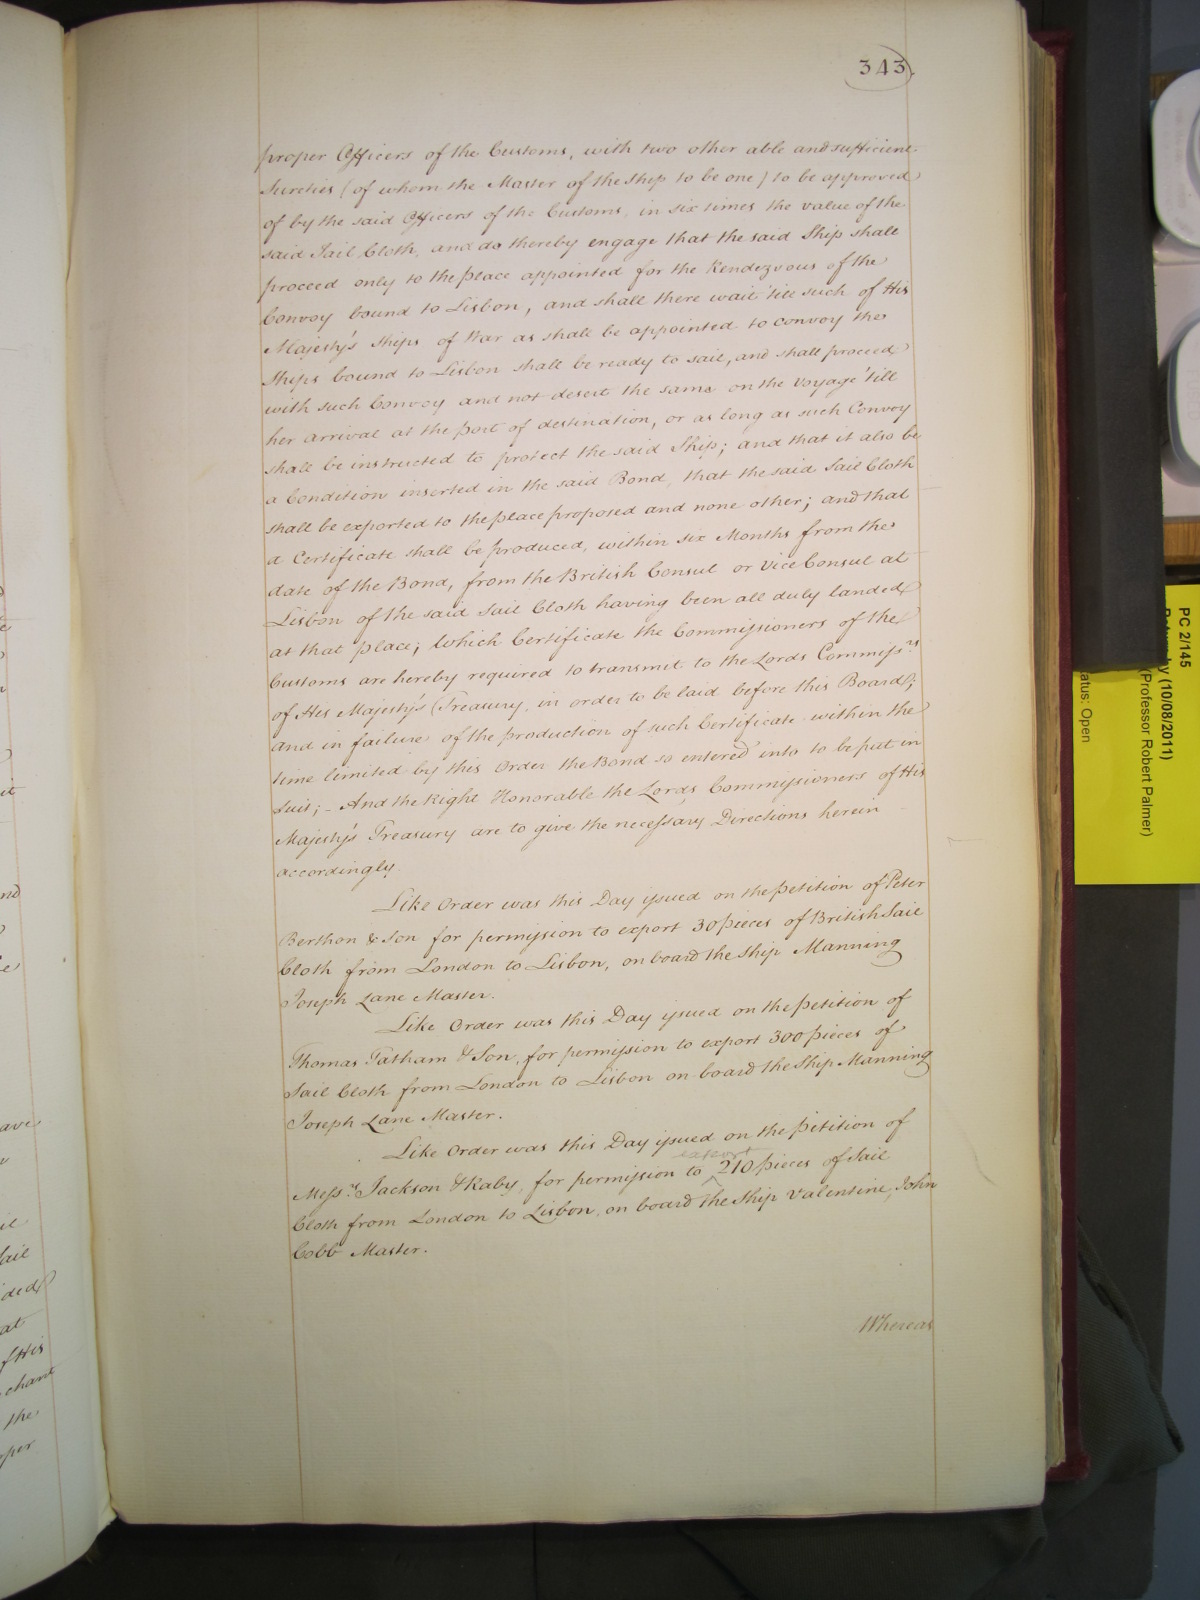 343.
proper Officers of the Customs, with two other able and sufficient
Sureties (of whom the Master of the Ship to be one) to be approved
of by the said Officers of the Customs, in six times the value of the
said Sail Cloth, and do thereby engage that the said Ship shall
proceed only to the place appointed for the Rendezvous of the
Convoy bound to Lisbon, and shall there wait 'till such of His
Majesty's Ships of War as shall be appointed to convoy the
Ships bound to Lisbon shall be ready to sail, and shall proceed
with such Convoy and not desert the same on the Voyage 'till
her arrival at the port of destination, or as long as such Convoy
shall be instructed to protect the said Ship; and that it also be
a Condition inserted in the said Bond, that the said Sail Cloth
shall be exported to the place proposed and none other; and that
a Certificate shall be produced, within six Months from the
date of the Bond, from the British Consul or Vice Consul at
Lisbon of the said Sail Cloth having been all duly landed
at that place; Which Certificate the Commissioners of the
Customs are hereby required to transmit to the Lords Commissrs
of His Majesty's Treasury, in order to be laid before this Board;
and in failure of the production of such Certificate within the
time limited by this Order the Bond so entered into to be put in
Suit; - And the Right Honorable the Lords Commissioners of His
Majesty's Treasury are to give the necessary Directions herein
accordingly.
Like Order was this Day issued on the petition of Peter
Berthon & Son for permission to export 30 pieces of British Sail
Cloth from London to Lisbon, on board the Ship Manning
Joseph Lane Master.
Like Order was this Day issued on the petition of
Thomas Tatham & Son, for permission to export 300 pieces of
Sail Cloth from London to Lisbon on board the Ship Manning
Joseph Lane Master.
Like Order was this Day issued on the petition of
export
Messrs Jackson & Raby, for permission to ^ 210 pieces of Sail
Cloth from London to Lisbon, on board the Ship Valentine, John
Cobb Master.
Whereas
it
and
ave
ded
at
of His
chant
the
PC 2/145
by (10/08/2011)
(Professor Robert Palmer)
atus: Open